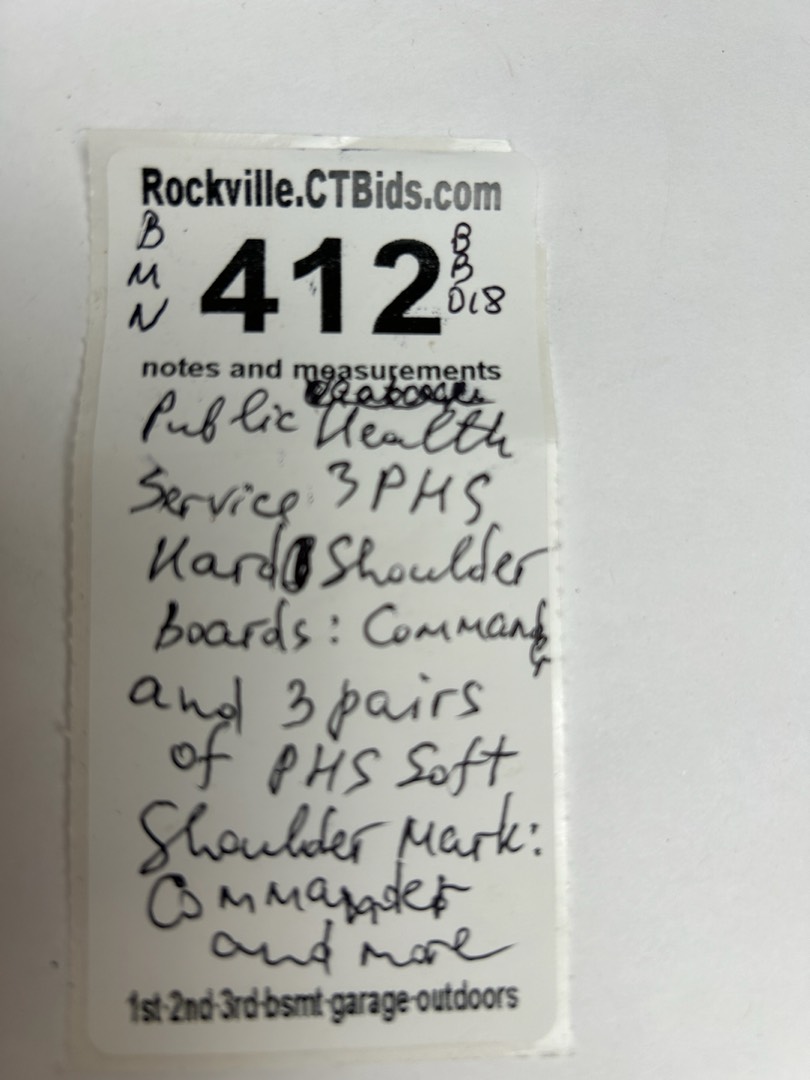 Rockville.CTBids.com
B M N
412
B B D18
notes and measurements
Public Health
Service 3 PHS
Hard Shoulder
Boards: Commander
and 3 pairs
of PHS Soft
Shoulder Mark:
Commander
and more
1st-2nd-3rd-bsmt-garage-outdoors